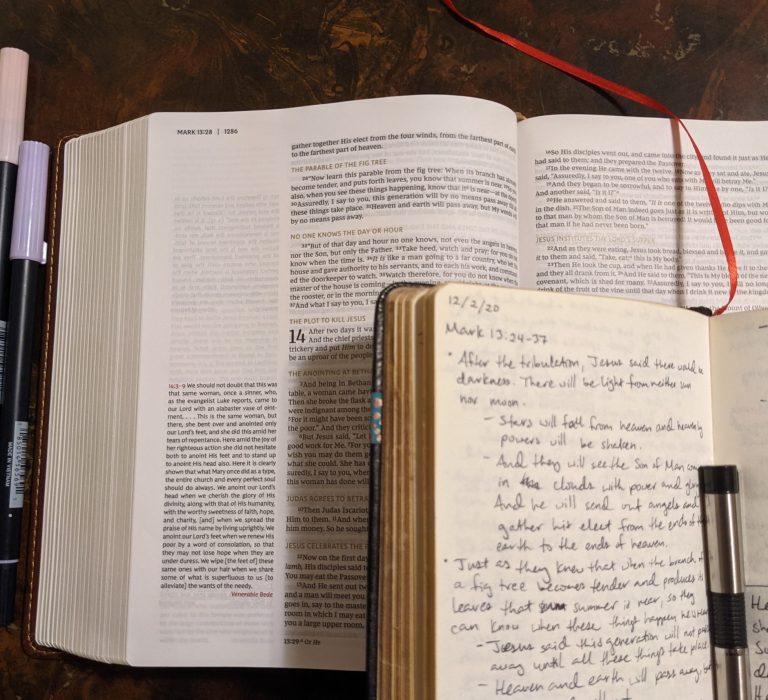 MARK 13:28 | 1286
gather together His elect from the four winds, from the farthest part of
to the farthest part of heaven.
THE PARABLE OF THE FIG TREE
28"Now learn this parable from the fig tree: When its branch has
become tender, and puts forth leaves, you know that summer is near.
also, when you see these things happening, know that it is near—at the
30Assuredly, I say to you, this generation will by no means pass
these things take place. 31Heaven and earth will pass away, but My words
by no means pass away.
NO ONE KNOWS THE DAY OR HOUR
32"But of that day and hour no one knows, not even the angels in
nor the Son, but only the Father. 33Take heed, watch and pray; for you
know when the time is. 34It is like a man going to a far country, who
house and gave authority to his servants, and to each his work, and
ed the doorkeeper to watch. 35Watch therefore, for you do not know
master of the house is coming
the rooster, or in the morning
37And what I say to you, I
THE PLOT TO KILL JESUS
14 After two days it was
And the chief priests
trickery and put Him to
be an uproar of the people
THE ANOINTING AT
3And being in
table, a woman came
Then she broke the flask
were indignant among
5For it might have been
the poor." And they
6But Jesus said, "Let
good work for Me. 7For
wish you may do them
what she could. She has
suredly, I say to you,
this woman has done will
JUDAS AGREES TO
10Then Judas Iscariot
Him to them. 11And when
him money. So he sought
JESUS CELEBRATES THE
12Now on the first day
lamb, His disciples said
You may eat the Passover
13And He sent out
and a man will meet you
goes in, say to the master
room in which I may eat
you a large upper room,
13:29 a Or He
14:3–9 We should not doubt that this was
that same woman, once a sinner, who,
as the evangelist Luke reports, came to
our Lord with an alabaster vase of oint-
ment, . . . This is the same woman, but
there, she bent over and anointed only
our Lord's feet, and she did this amid her
tears of repentance. Here amid the joy of
her righteous action she did not hesitate
both to anoint His feet and to stand up
to anoint His head also. Here it is clearly
shown that what Mary once did as a type,
the entire church and every perfect soul
should do always. We anoint our Lord's
head when we cherish the glory of His
divinity, along with that of His humanity,
with the worthy sweetness of faith, hope,
and charity, [and] when we spread the
praise of His name by living uprightly. We
anoint our Lord's feet when we renew His
poor by a word of consolation, so that
they may not lose hope when they are
under duress. We wipe [the feet of] these
same ones with our hair when we share
some of what is superfluous to us [to
alleviate] the wants of the needy.
Venerable Bede
16So His disciples went out, and came into the city, and found it just as He
had said to them; and they prepared the Passover.
17In the evening He came with the twelve. 18Now as they sat and ate, Jesus
said, "Assuredly, I say to you, one of you who eats with Me will betray Me."
19And they began to be sorrowful, and to say to Him one by one, "Is it I?"
And another said, "Is it I?"
20He answered and said to them, "It is one of the twelve, who dips with Me
in the dish. 21The Son of Man indeed goes just as it is written of Him, but woe
to that man by whom the Son of Man is betrayed! It would have been good for
that man if he had never been born."
JESUS INSTITUTES THE LORD'S SUPPER
22And as they were eating, Jesus took bread, blessed and broke it, and gave
it to them and said, "Take, eat; this is My body."
23Then He took the cup, and when He had given thanks He gave it to them,
and they all drank from it. 24And He said to them, "This is My blood of the new
covenant, which is shed for many. 25Assuredly, I say to you, I will no longer
drink of the fruit of the vine until that day when I drink it new in the kingdom
MADE IN VIETNAM
12/2/20
Mark 13:24-37
• After the tribulation, Jesus said there would be
darkness. There will be light from neither sun
nor moon.
- Stars will fall from heaven and heavenly
powers will be shaken.
- And they will see the Son of Man
in clouds with power and
And he will send out angels and
gather his elect from the ends of
earth to the ends of heaven.
• Just as they know that when the branch of
a fig tree becomes tender and produces its
leaves that summer is near, so they
can know when these things happen he is near
- Jesus said this generation will not pass
away until all these things take place
- Heaven and earth will pass away,